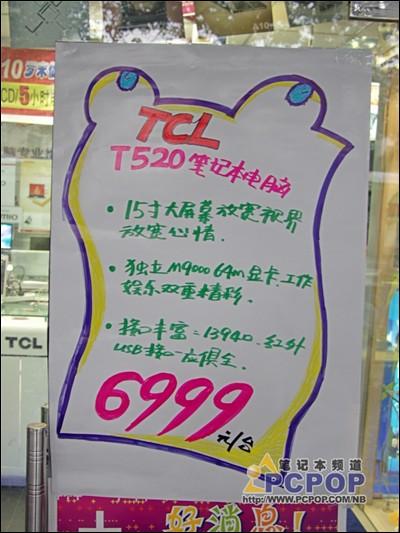 10
CD/5小时
TCL
T520笔记本电脑
·15寸大屏幕放宽视界
放宽心情.
·独立M9000 64m显卡.工作
娱乐双重精彩.
·接口丰富.13940.红外
USB接口一应俱全.
6999
元/台
TCL
笔记本频道
PCPOP
http://www.PCPOP.COM/NB
好消息!